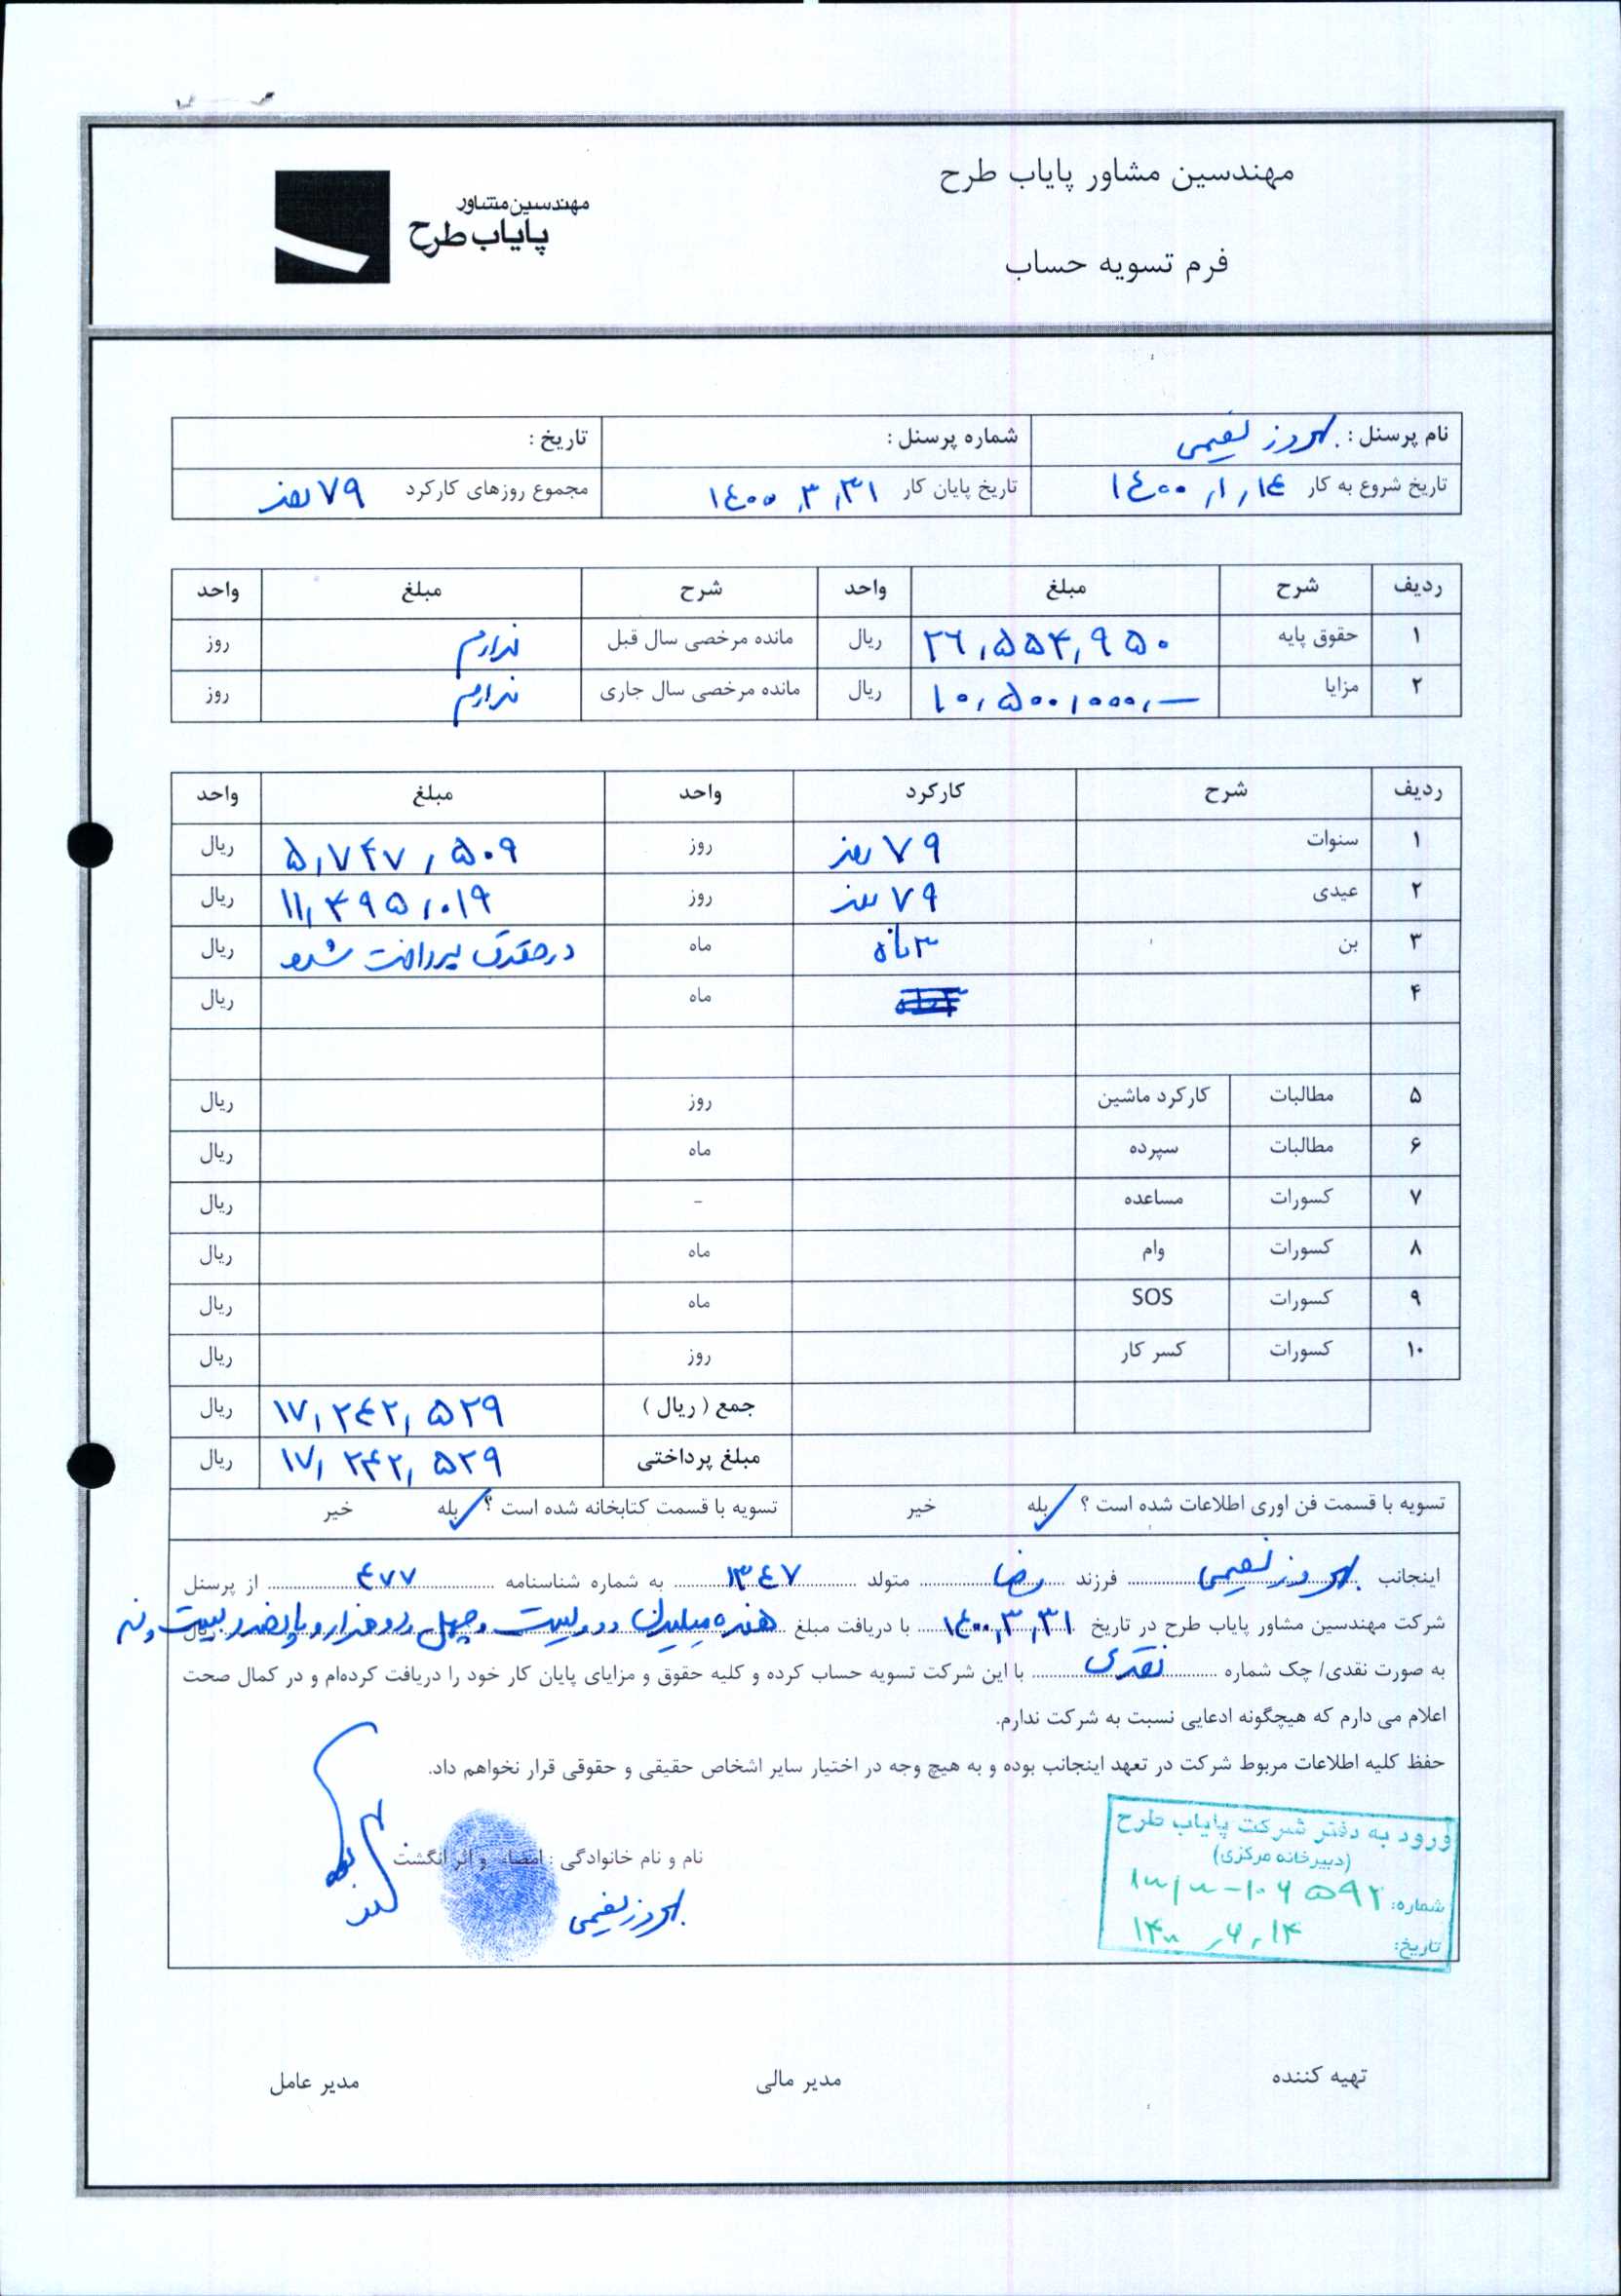 مهندسین مشاور پایاب طرح
فرم تسویه حساب
مهندسین مشاور
پایاب طرح
نام پرسنل : بهروز نعیمی شماره پرسنل : تاریخ :
تاریخ شروع به کار ۱۴۰۰,۱,۱۴ تاریخ پایان کار ۱۴۰۰,۳,۳۱ مجموع روزهای کارکرد ۷۹ روز
ردیف شرح مبلغ واحد شرح مبلغ واحد
۱ حقوق پایه ۲۶,۵۵۴,۹۵۰ ریال مانده مرخصی سال قبل ندارم روز
۲ مزایا ۱۰,۵۰۰,۰۰۰,— ریال مانده مرخصی سال جاری ندارم روز
ردیف شرح کارکرد واحد مبلغ واحد
۱ سنوات ۷۹ روز روز ۵,۷۴۷,۵۰۹ ریال
۲ عیدی ۷۹ روز روز ۱۱,۴۹۵,۰۱۹ ریال
۳ بن ۳ ماه ماه در حقوق پرداخت شده ریال
۴ ماه ریال
۵ مطالبات کارکرد ماشین روز ریال
۶ مطالبات سپرده ماه ریال
۷ کسورات مساعده - ریال
۸ کسورات وام ماه ریال
۹ کسورات SOS ماه ریال
۱۰ کسورات کسر کار روز ریال
جمع ( ریال ) ۱۷,۲۴۲,۵۲۹ ریال
مبلغ پرداختی ۱۷,۲۴۲,۵۲۹ ریال
تسویه با قسمت فن اوری اطلاعات شده است ؟ بله خیر تسویه با قسمت کتابخانه شده است ؟ بله خیر
اینجانب بهروز نعیمی فرزند رضا متولد ۱۳۴۷ به شماره شناسنامه ۴۷۷ از پرسنل
شرکت مهندسین مشاور پایاب طرح در تاریخ ۱۴۰۰,۳,۳۱ با دریافت مبلغ هفده میلیون و دویست و چهل و دو هزار و پانصد و بیست و نه ریال
به صورت نقدی/ چک شماره نقدی با این شرکت تسویه حساب کرده و کلیه حقوق و مزایای پایان کار خود را دریافت کرده‌ام و در کمال صحت
اعلام می دارم که هیچگونه ادعایی نسبت به شرکت ندارم.
حفظ کلیه اطلاعات مربوط شرکت در تعهد اینجانب بوده و به هیچ وجه در اختیار سایر اشخاص حقیقی و حقوقی قرار نخواهم داد.
ورود به دفتر شرکت پایاب طرح
(دبیرخانه مرکزی)
شماره:
تاریخ: ۱۴۰۰,۶,۱۴
نام و نام خانوادگی : امضاء و اثر انگشت
بهروز نعیمی
تهیه کننده مدیر مالی مدیر عامل